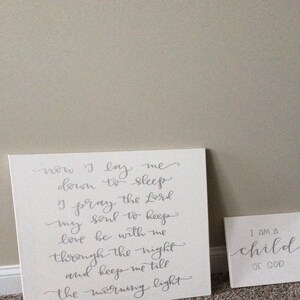 now I lay me
down to sleep
I pray the Lord
my soul to keep
love be with me
through the night
and keep me till
the morning light
I AM A
child
OF GOD